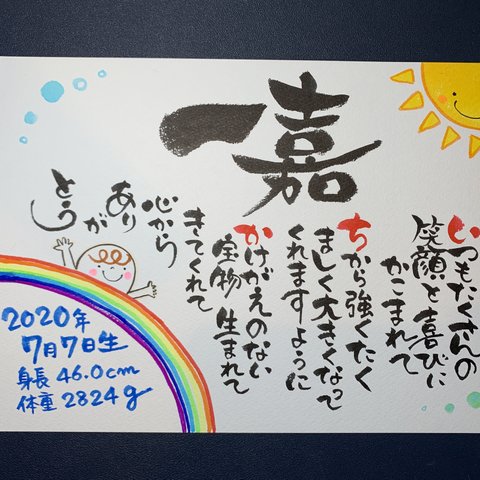 一嘉
いつもたくさんの
笑顔と喜びに
かこまれて
ちから強くたく
ましく大きくなって
くれますように
かけがえのない
宝物 生まれて
きてくれて
心から
あり
が
とう
2020年
7月7日生
身長 46.0cm
体重 2824g